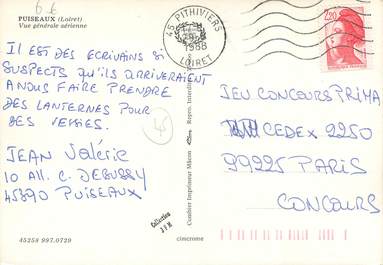 6 €
PUISEAUX (Loiret)
Vue générale aérienne
45 PITHIVIERS
1988
LOIRET
2,20
IL EST DES ECRIVAINS SI
SUSPECTS QU'ILS ARRIVERAIENT
A NOUS FAIRE PRENDRE
DES LANTERNES POUR
DES VESSIES.
JEAN Valérie
10 All. C. DEBUSSY
45890 PUISEAUX
45
Combier Imprimeur Mâcon
Repro. Interdite
JEU CONCOURS PRIMA
CEDEX 2250
99225 PARIS
CONCOURS
Collection
J F M
45258 997.0729
cimcrome